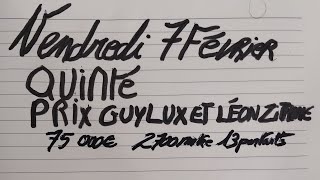 Vendredi 7 Février
QUINTÉ
PRIX GUY LUX ET LÉON ZITRONE
75 000€ 2700 mètre 13 partants